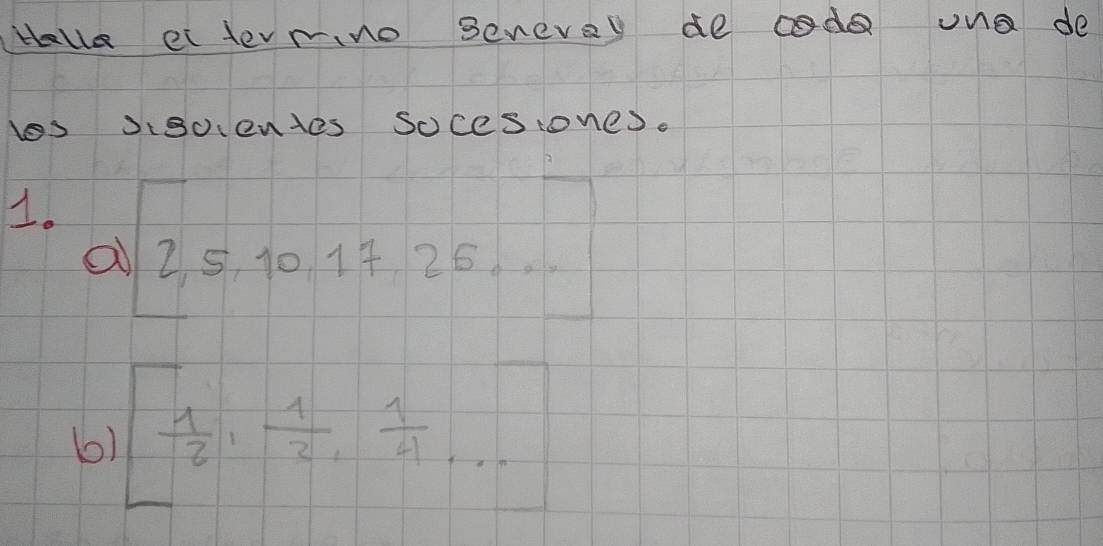 Halla el termino general de cada una de
las siguientes sucesiones.
1.
a) [2, 5, 10, 17, 26, ...]
b) [1/2, 1/3, 1/4, ...]